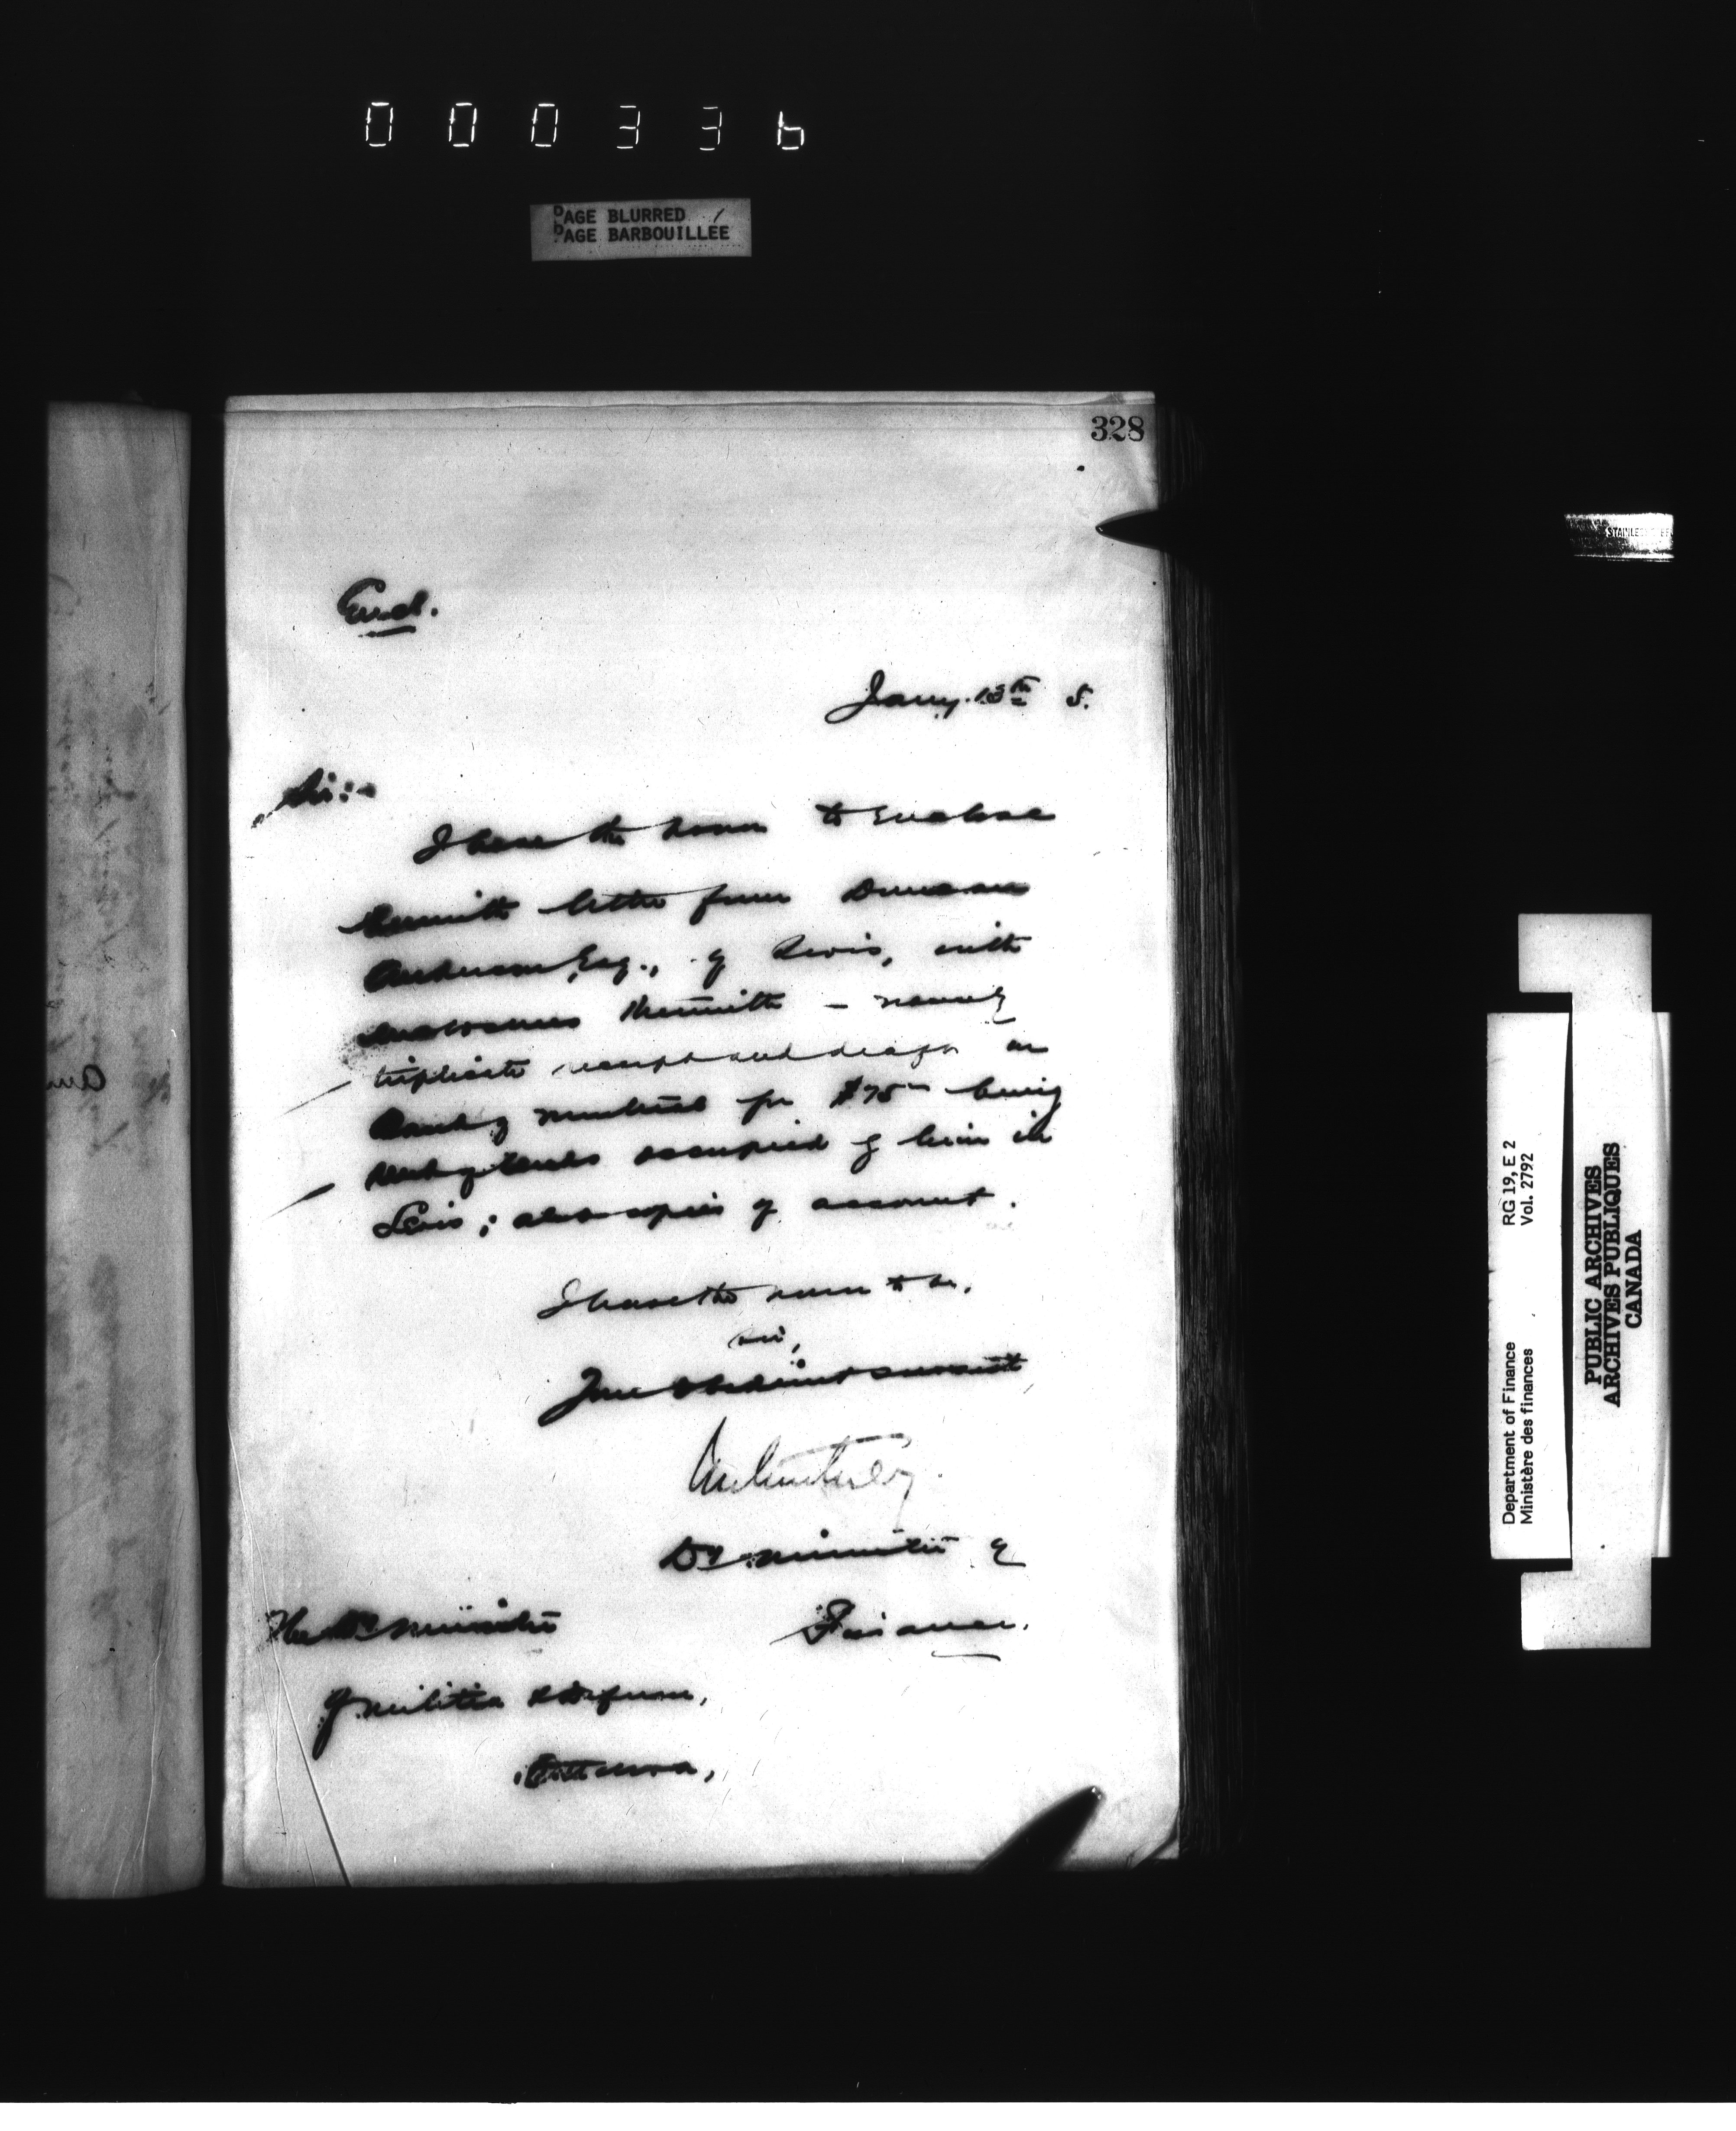 000336
PAGE BLURRED
PAGE BARBOUILLÉE
328
Encl.
Jany. 13th 5.
Sir:-
I have the honor to enclose
herewith letter from Duncan
Anderson, Esq., of Levis, with
enclosures therewith – namely
triplicate receipt and draft on
Bank of Montreal for $75 – being
rent of lands occupied by him in
Levis; also copies of account.
I have the honor to be,
Sir,
Your obedient servant
Dy. Minister of
Finance.
The Dy. Minister
of Militia & Defence,
Ottawa,
STAINLESS
Department of Finance RG 19, E 2
Ministère des finances Vol. 2792
PUBLIC ARCHIVES
ARCHIVES PUBLIQUES
CANADA